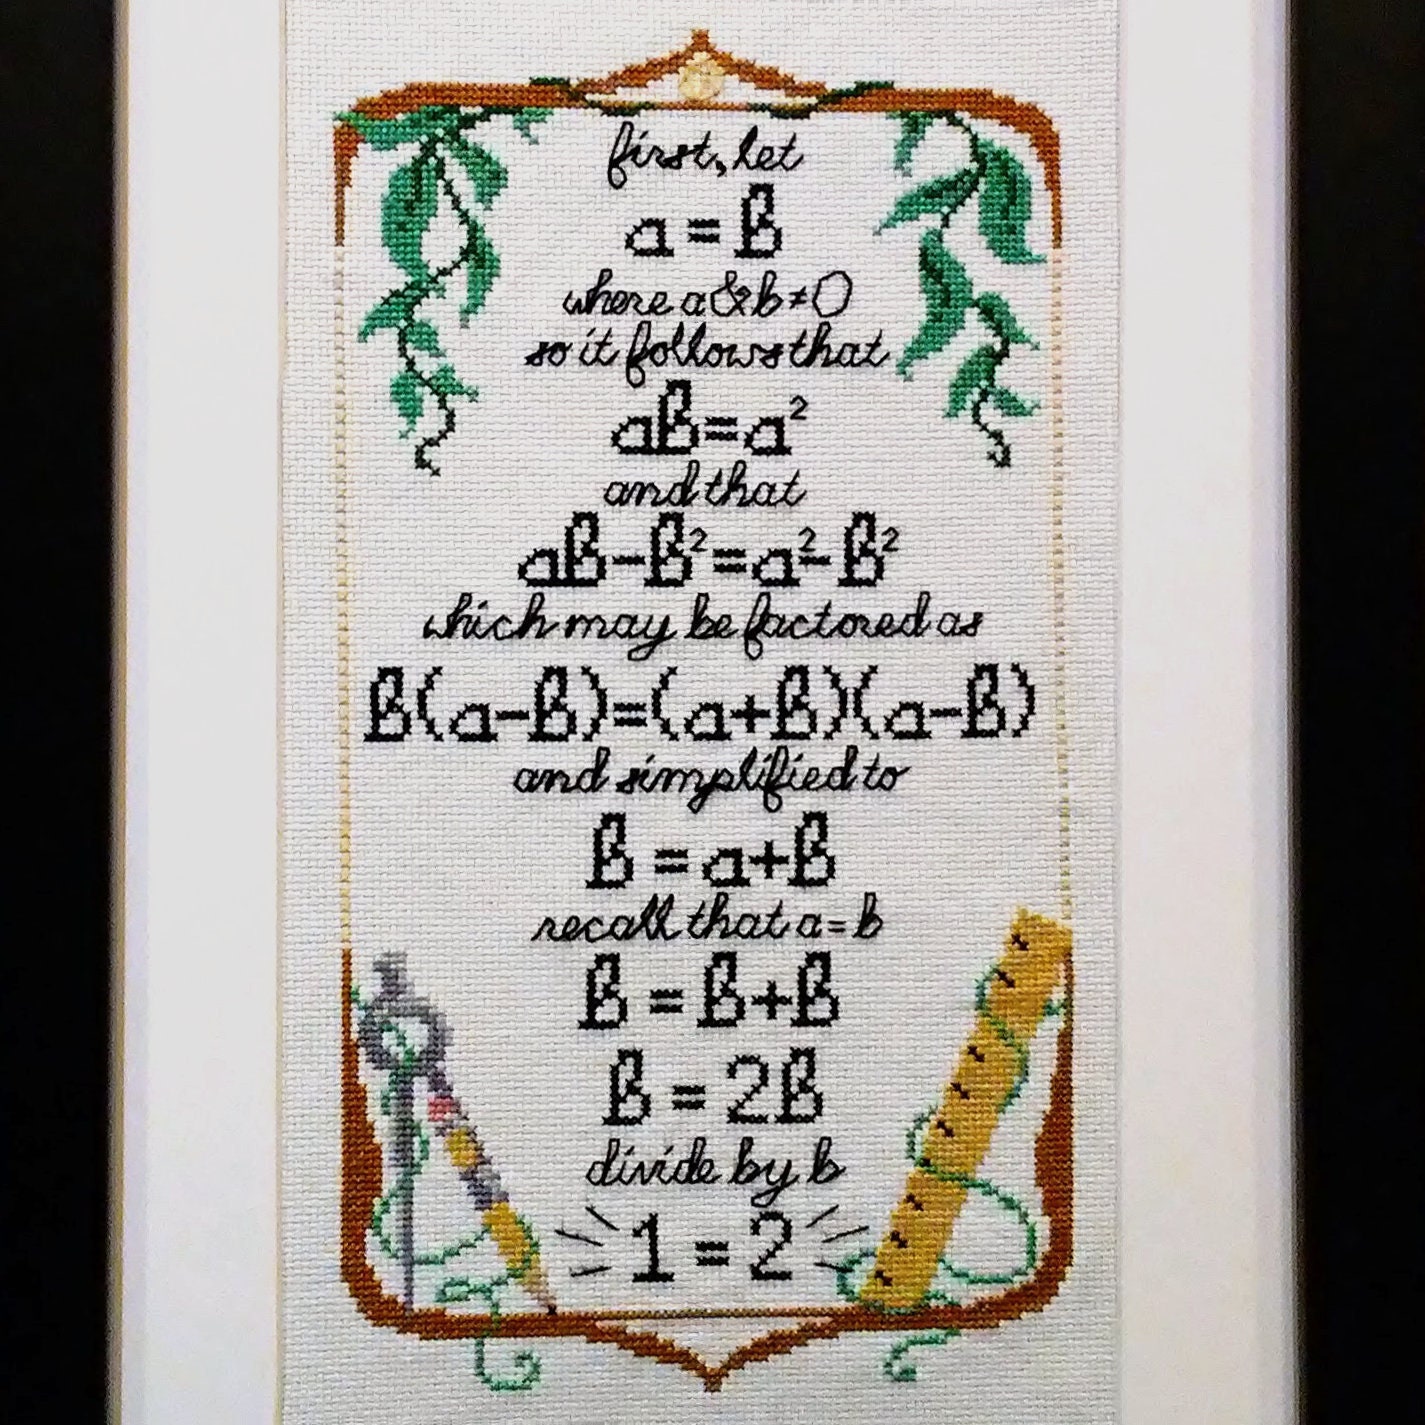 first, let
a = b
where a & b ≠ 0
so it follows that
ab = a²
and that
ab - b² = a² - b²
which may be factored as
b(a-b) = (a+b)(a-b)
and simplified to
b = a+b
recall that a = b
b = b+b
b = 2b
divide by b
1 = 2